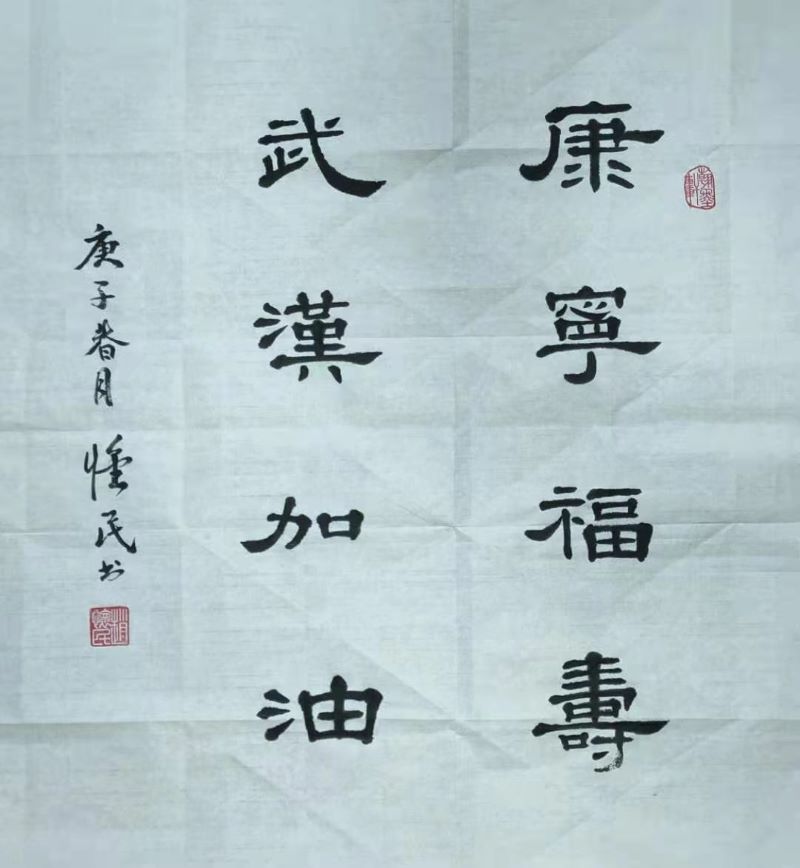 康寧福壽
武漢加油
庚子春月 懷民书